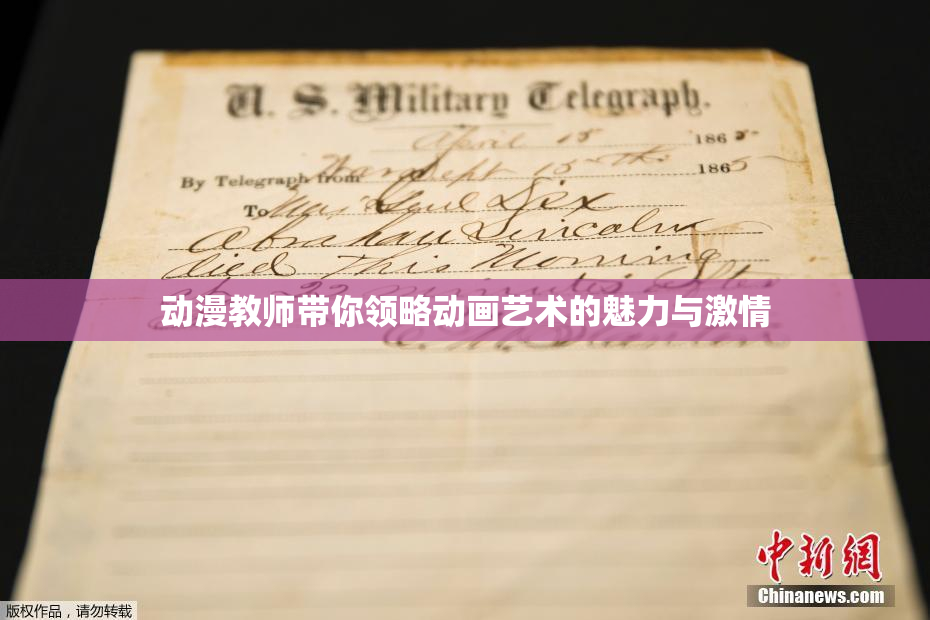 U. S. Military Telegraph.
April 15 1865
By Telegraph from War Dept 15th 1865
To Maj Genl Dix
Abraham Lincoln
died This Morning
at 22 minutes after
动漫教师带你领略动画艺术的魅力与激情
E. M. Stanton
中新网
Chinanews.com
版权作品，请勿转载